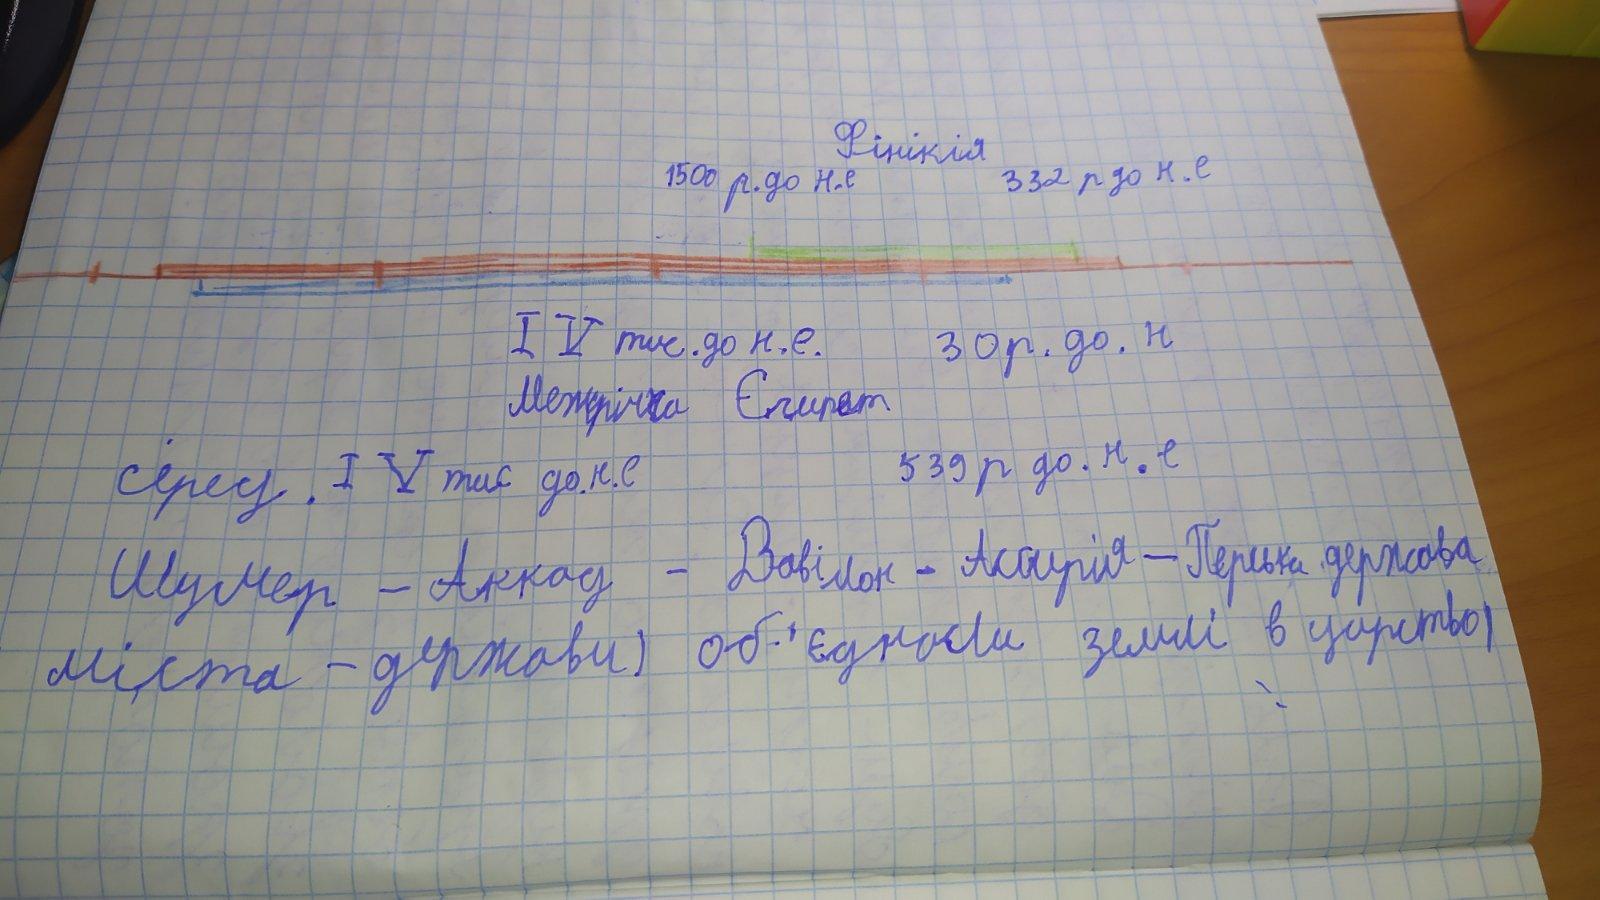 Фінікія
1500 р. до н.е 332 р до н.е
IV тис. до н.е. 30 р. до. н
Межрічка Єгипет
серед. IV тис до.н.е 539 р до.н.е
Шумер - Аккад - Вавілон - Ассирія - Перська держава
міста - держави) об'єднали землі в царство)